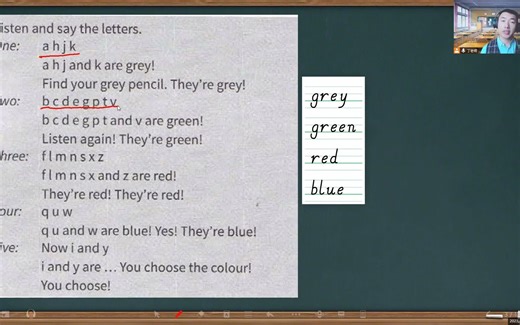 isten and say the letters.
One: a h j k
a h j and k are grey!
Find your grey pencil. They're grey!
wo: b c d e g p t v
b c d e g p t and v are green!
Listen again! They're green!
hree: f l m n s x z
f l m n s x and z are red!
They're red! They're red!
our: q u w
q u and w are blue! Yes! They're blue!
ive: Now i and y
i and y are ... You choose the colour!
You choose!
grey
green
red
blue